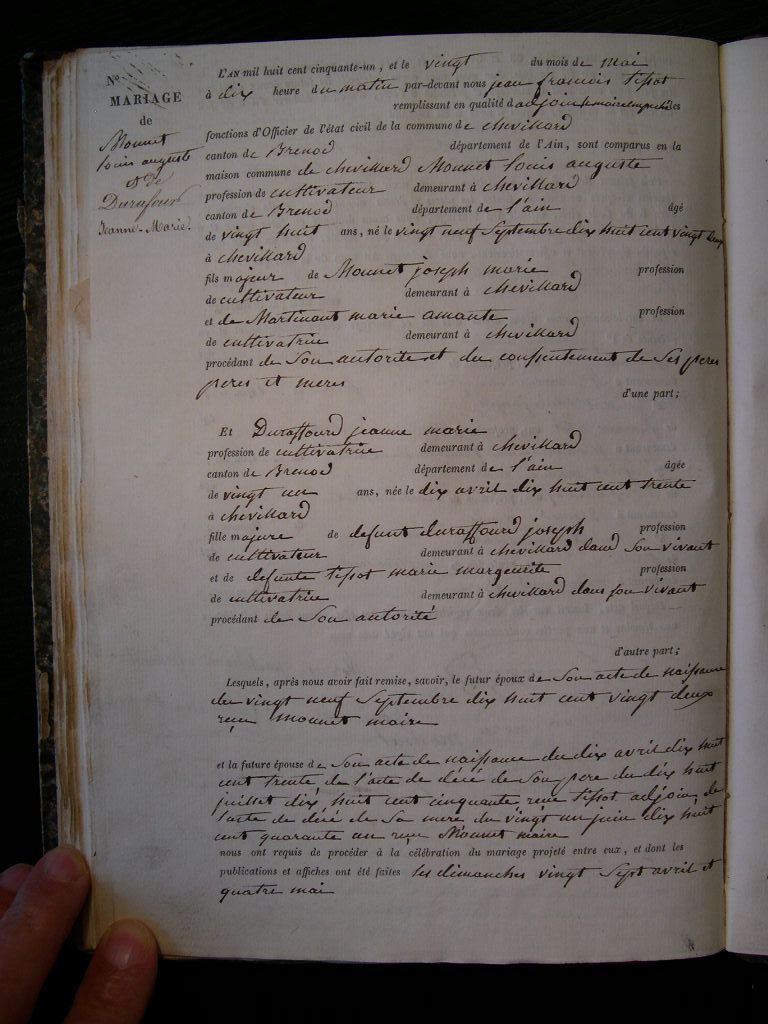 N°
MARIAGE
de
Monnet
louis auguste
et de
Duraffourd
Jeanne-Marie.
L'AN mil huit cent cinquante-un, et le vingt du mois de mai
à dix heure du matin par-devant nous jean francois tissot
remplissant en qualité d'adjoint le maire empeché les
fonctions d'Officier de l'état civil de la commune de chevillard
canton de Brenod département de l'Ain, sont comparus en la
maison commune de chevillard Monnet louis auguste
profession de cultivateur demeurant à chevillard
canton de Brenod département de l'ain âgé
de vingt huit ans, né le vingt neuf Septembre dix huit cent vingt deux
à chevillard
fils majeur de Monnet joseph marie profession
de cultivateur demeurant à chevillard
et de Martinant marie amante profession
de cultivatrice demeurant à chevillard
procédant de Son autorite et du consentement de Ses peres
peres et meres
d'une part;
Et Duraffourd jeanne marie
profession de cultivatrice demeurant à chevillard
canton de Brenod département de l'ain âgée
de vingt un ans, née le dix avril dix huit cent trente
à chevillard
fille majure de defunt duraffourd joseph profession
de cultivateur demeurant à chevillard dans Son vivant
et de defunte tissot marie marguerite profession
de cultivatrice demeurant à chevillard dans son vivant
procédant de Son autorité
d'autre part;
Lesquels, après nous avoir fait remise, savoir, le futur époux de Son acte de naissance
du vingt neuf Septembre dix huit cent vingt deux
reçu monnet maire
et la future épouse de Son acte de naissance du dix avril dix huit
cent trente de l'acte de décé de Son pere du dix huit
juillet dix huit cent cinquante reçu tissot adjoint de
l'acte de décé de Sa mere du vingt un juin dix huit
cent quarante un reçu Monnet maire
nous ont requis de procéder à la célébration du mariage projeté entre eux, et dont les
publications et affiches ont été faites les dimanches vingt Sept avril et
quatre mai